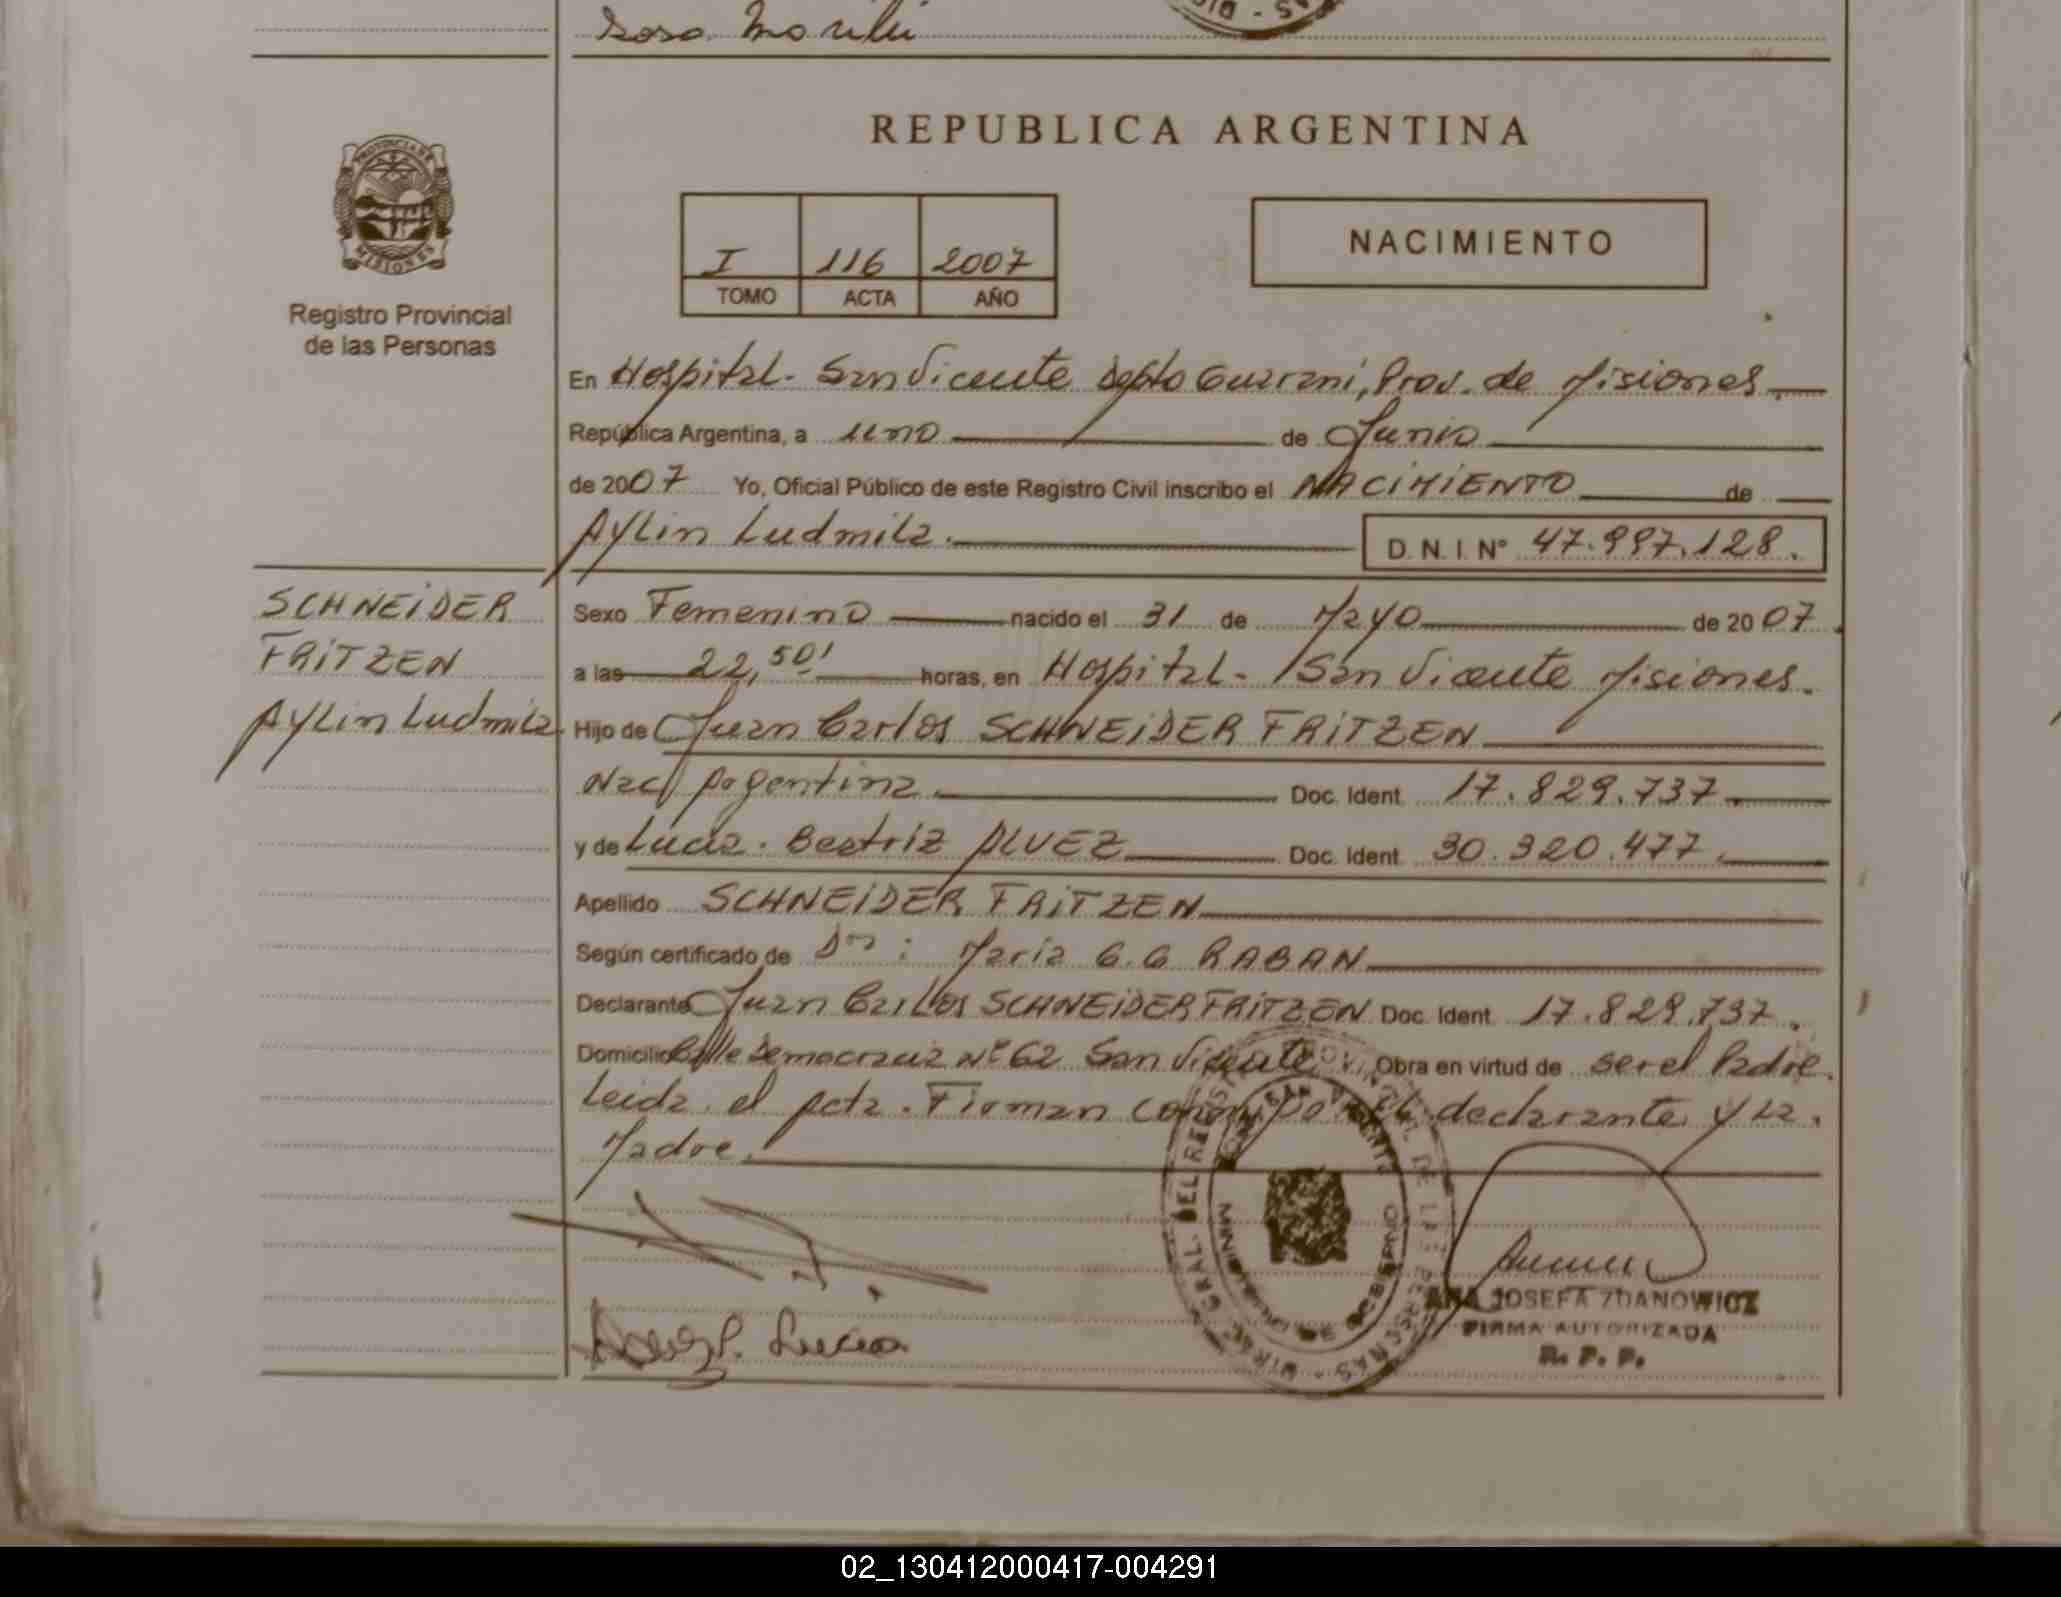 Sosa Marilu
REPUBLICA ARGENTINA
PROVINCIA DE
MISIONES
Registro Provincial
de las Personas
I 116 2007
TOMO ACTA AÑO
NACIMIENTO
En Hospital - San Vicente Depto Guarani, Prov. de Misiones.
República Argentina, a uno de Junio
de 2007 Yo, Oficial Público de este Registro Civil inscribo el NACIMIENTO de
Aylin Ludmila.
D.N.I. Nº 47.997.128.
SCHNEIDER
FRITZEN
Aylin Ludmila
Sexo Femenino nacido el 31 de Mayo de 2007.
a las 22,50' horas, en Hospital - San Vicente Misiones.
Hijo de Juan Carlos SCHNEIDER FRITZEN
Nac Argentina. Doc. Ident. 17.829.737.
y de Lucia. Beatriz ALVEZ Doc. Ident. 30.320.477.
Apellido SCHNEIDER FRITZEN
Según certificado de Dra: Maria G.G RABAN
Declarante Juan Carlos SCHNEIDER FRITZEN Doc. Ident. 17.829.737.
Domicilio Calle Democracia Nº 62 San Vicente. Obra en virtud de ser el Padre.
Leida el Acta. Firman el declarante y La.
Madre.
Lucia
ANA JOSEFA ZDANOWICZ
FIRMA AUTORIZADA
R. P. P.
02_130412000417-004291